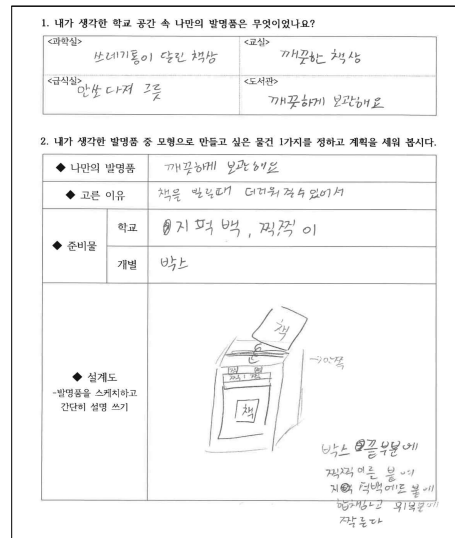 1. 내가 생각한 학교 공간 속 나만의 발명품은 무엇이었나요?
<과학실>
쓰레기통이 달린 책상
<교실>
깨끗한 책상
<급식실>
<도서관>
깨끗하게 보관해요
2. 내가 생각한 발명품 중 모형으로 만들고 싶은 물건 1가지를 정하고 계획을 세워 봅시다.
◆ 나만의 발명품
깨끗하게 보관해요
◆ 고른 이유
책을
◆ 준비물
학교
지퍽백, 찍찍이
개별
박스
◆ 설계도
-발명품을 스케치하고
간단히 설명 쓰기
책
책
→안쪽
박스 끝부분에
찍찍이를 붙여